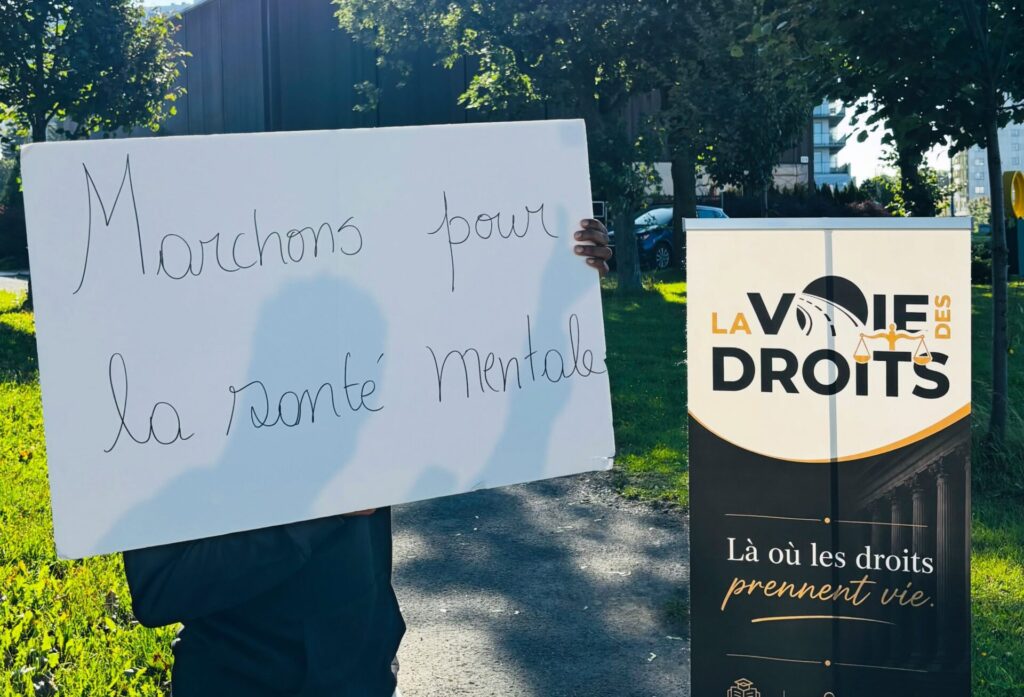 Marchons pour
la santé mentale
LA VOIE DES
DROITS
Là où les droits
prennent vie.